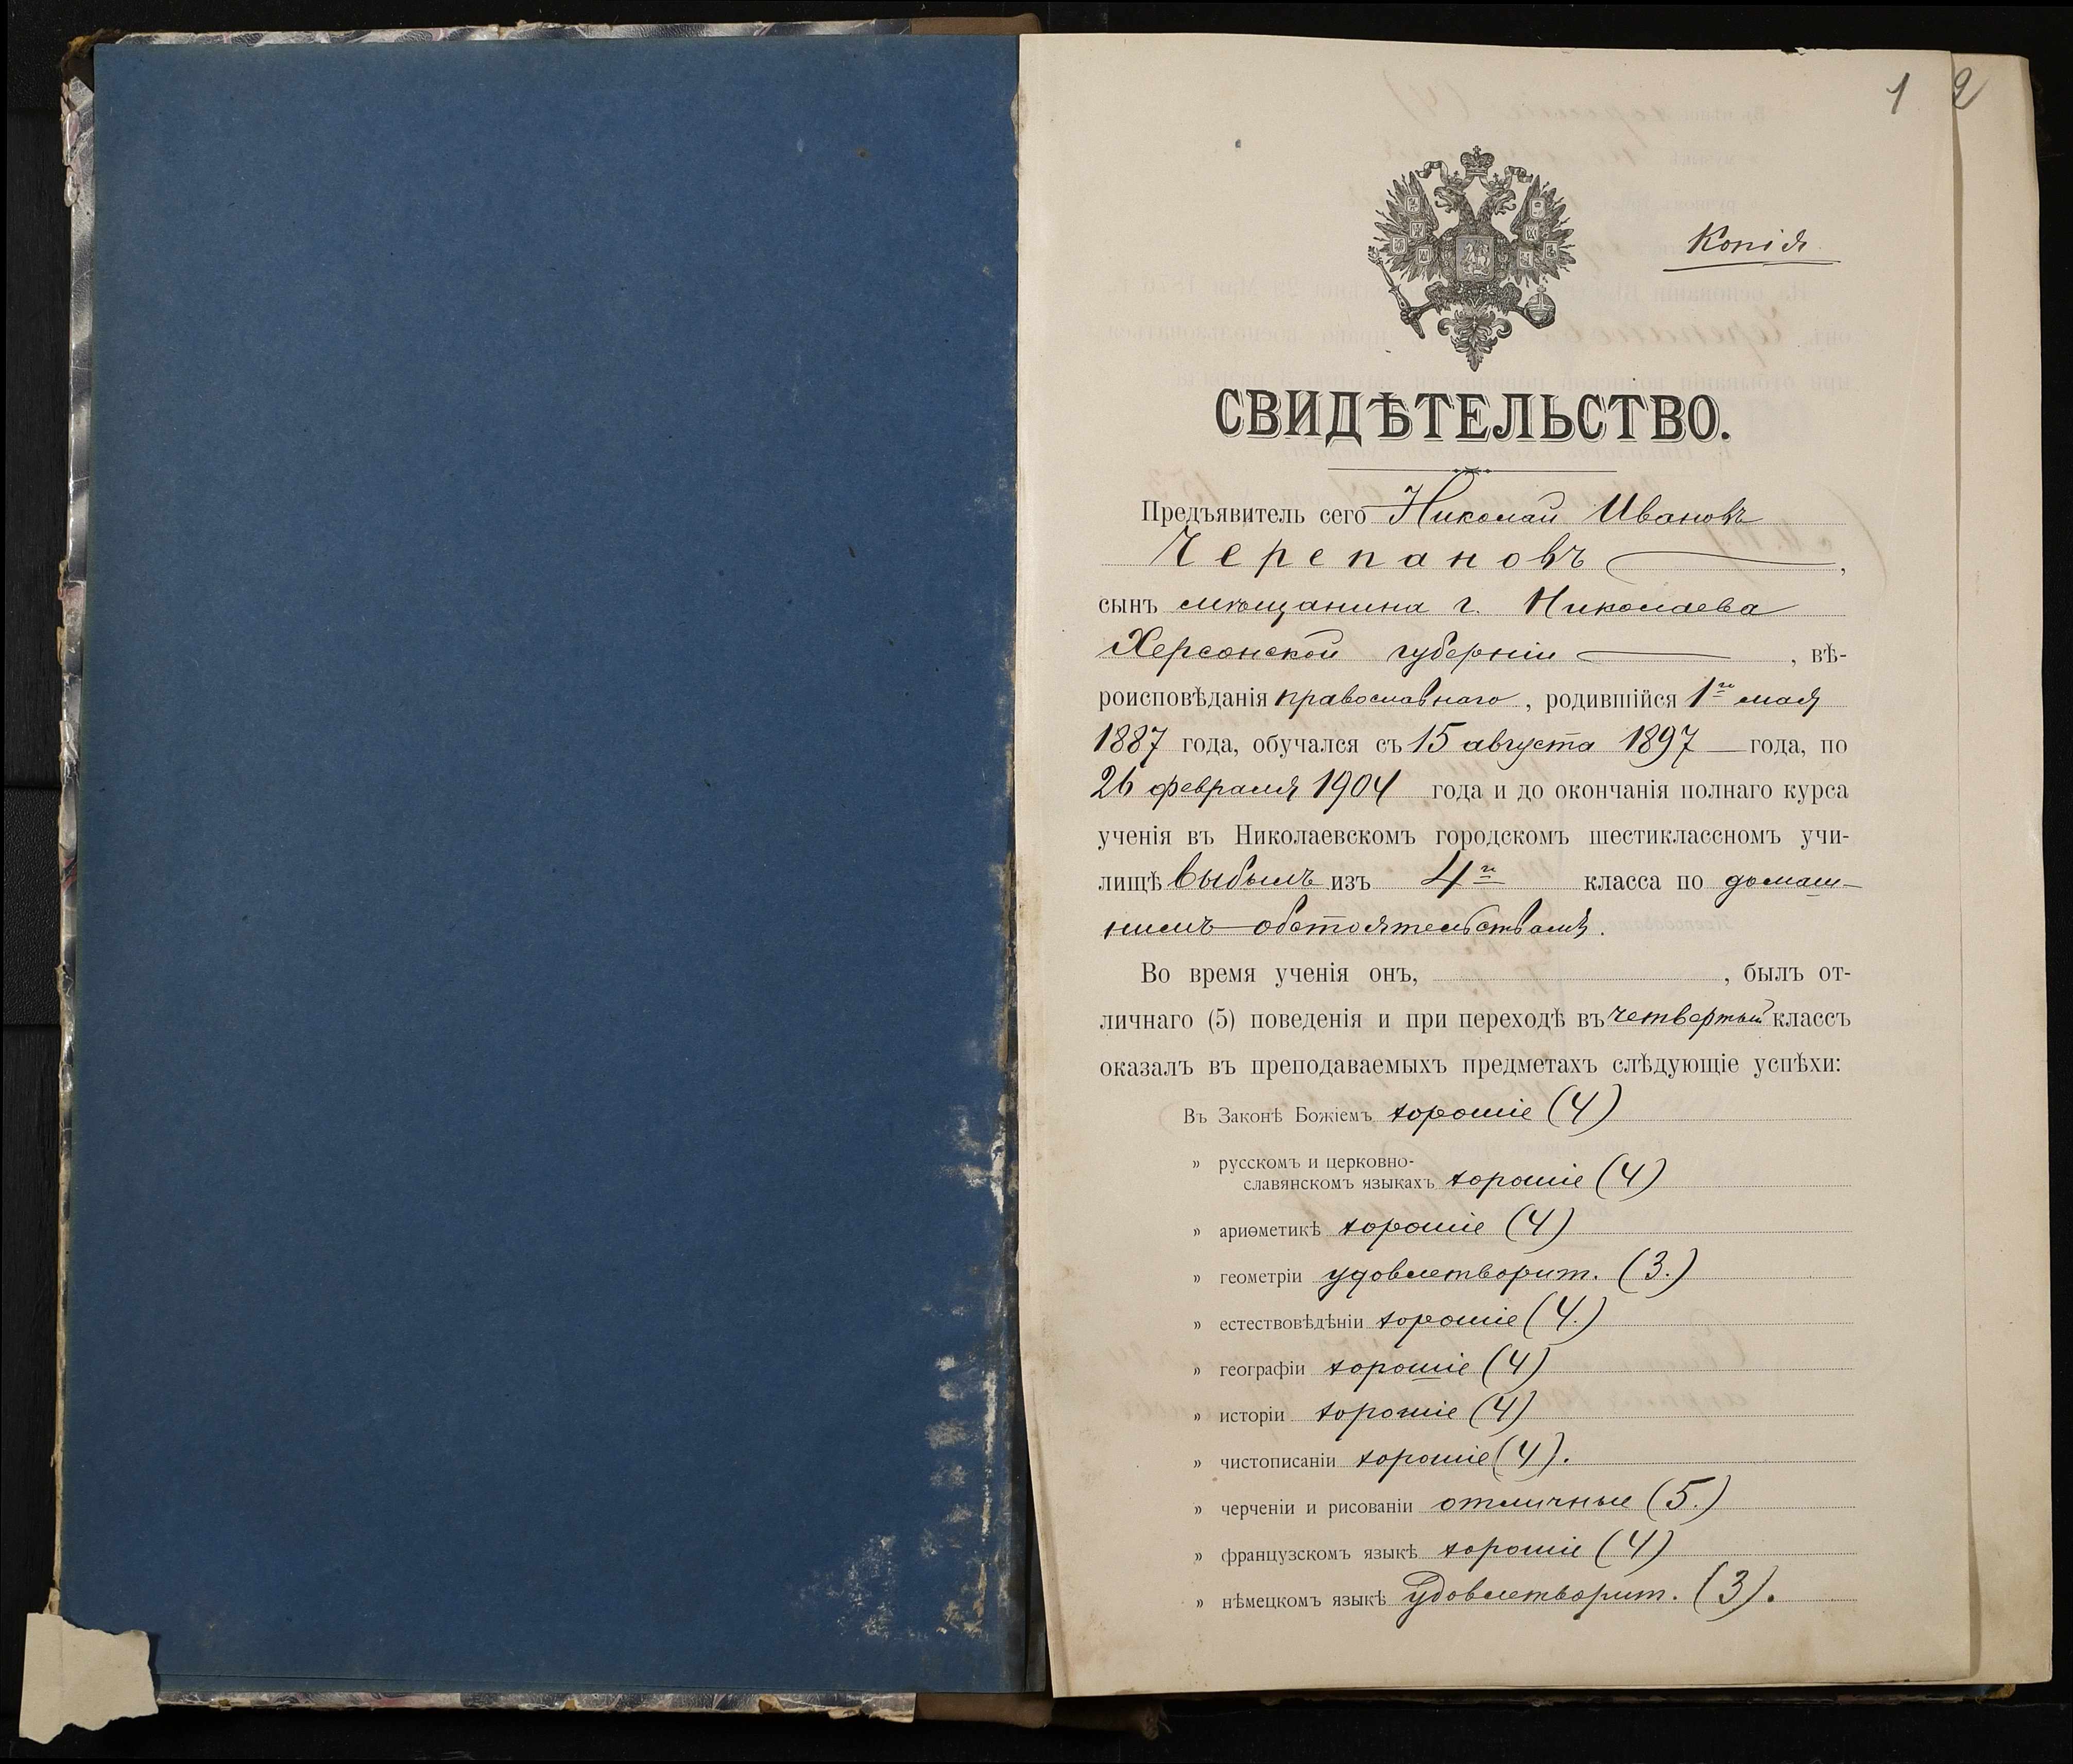 1 2
Копія
СВИДѢТЕЛЬСТВО.
Предъявитель сего Николай Ивановъ
Черепановъ,
сынъ мѣщанина г. Николаева
Херсонской губерніи, вѣ-
роисповѣданія православнаго, родившійся 1го мая
1887 года, обучался съ 15 августа 1897 года, по
26 февраля 1904 года и до окончанія полнаго курса
ученія въ Николаевскомъ городскомъ шестиклассномъ учи-
лищѣ выбылъ изъ 4го класса по домаш-
нимъ обстоятельствамъ.
Во время ученія онъ, , былъ от-
личнаго (5) поведенія и при переходѣ въ четвертый классъ
оказалъ въ преподаваемыхъ предметахъ слѣдующіе успѣхи:
Въ Законѣ Божіемъ хорошіе (4)
» русскомъ и церковно-
славянскомъ языкахъ хорошіе (4)
» ариѳметикѣ хорошіе (4)
» геометріи удовлетворит. (3.)
» естествовѣдѣніи хорошіе (4.)
» географіи хорошіе (4)
» исторіи хорошіе (4)
» чистописаніи хорошіе (4).
» черченіи и рисованіи отличные (5.)
» французскомъ языкѣ хорошіе (4)
» нѣмецкомъ языкѣ удовлетворит. (3).